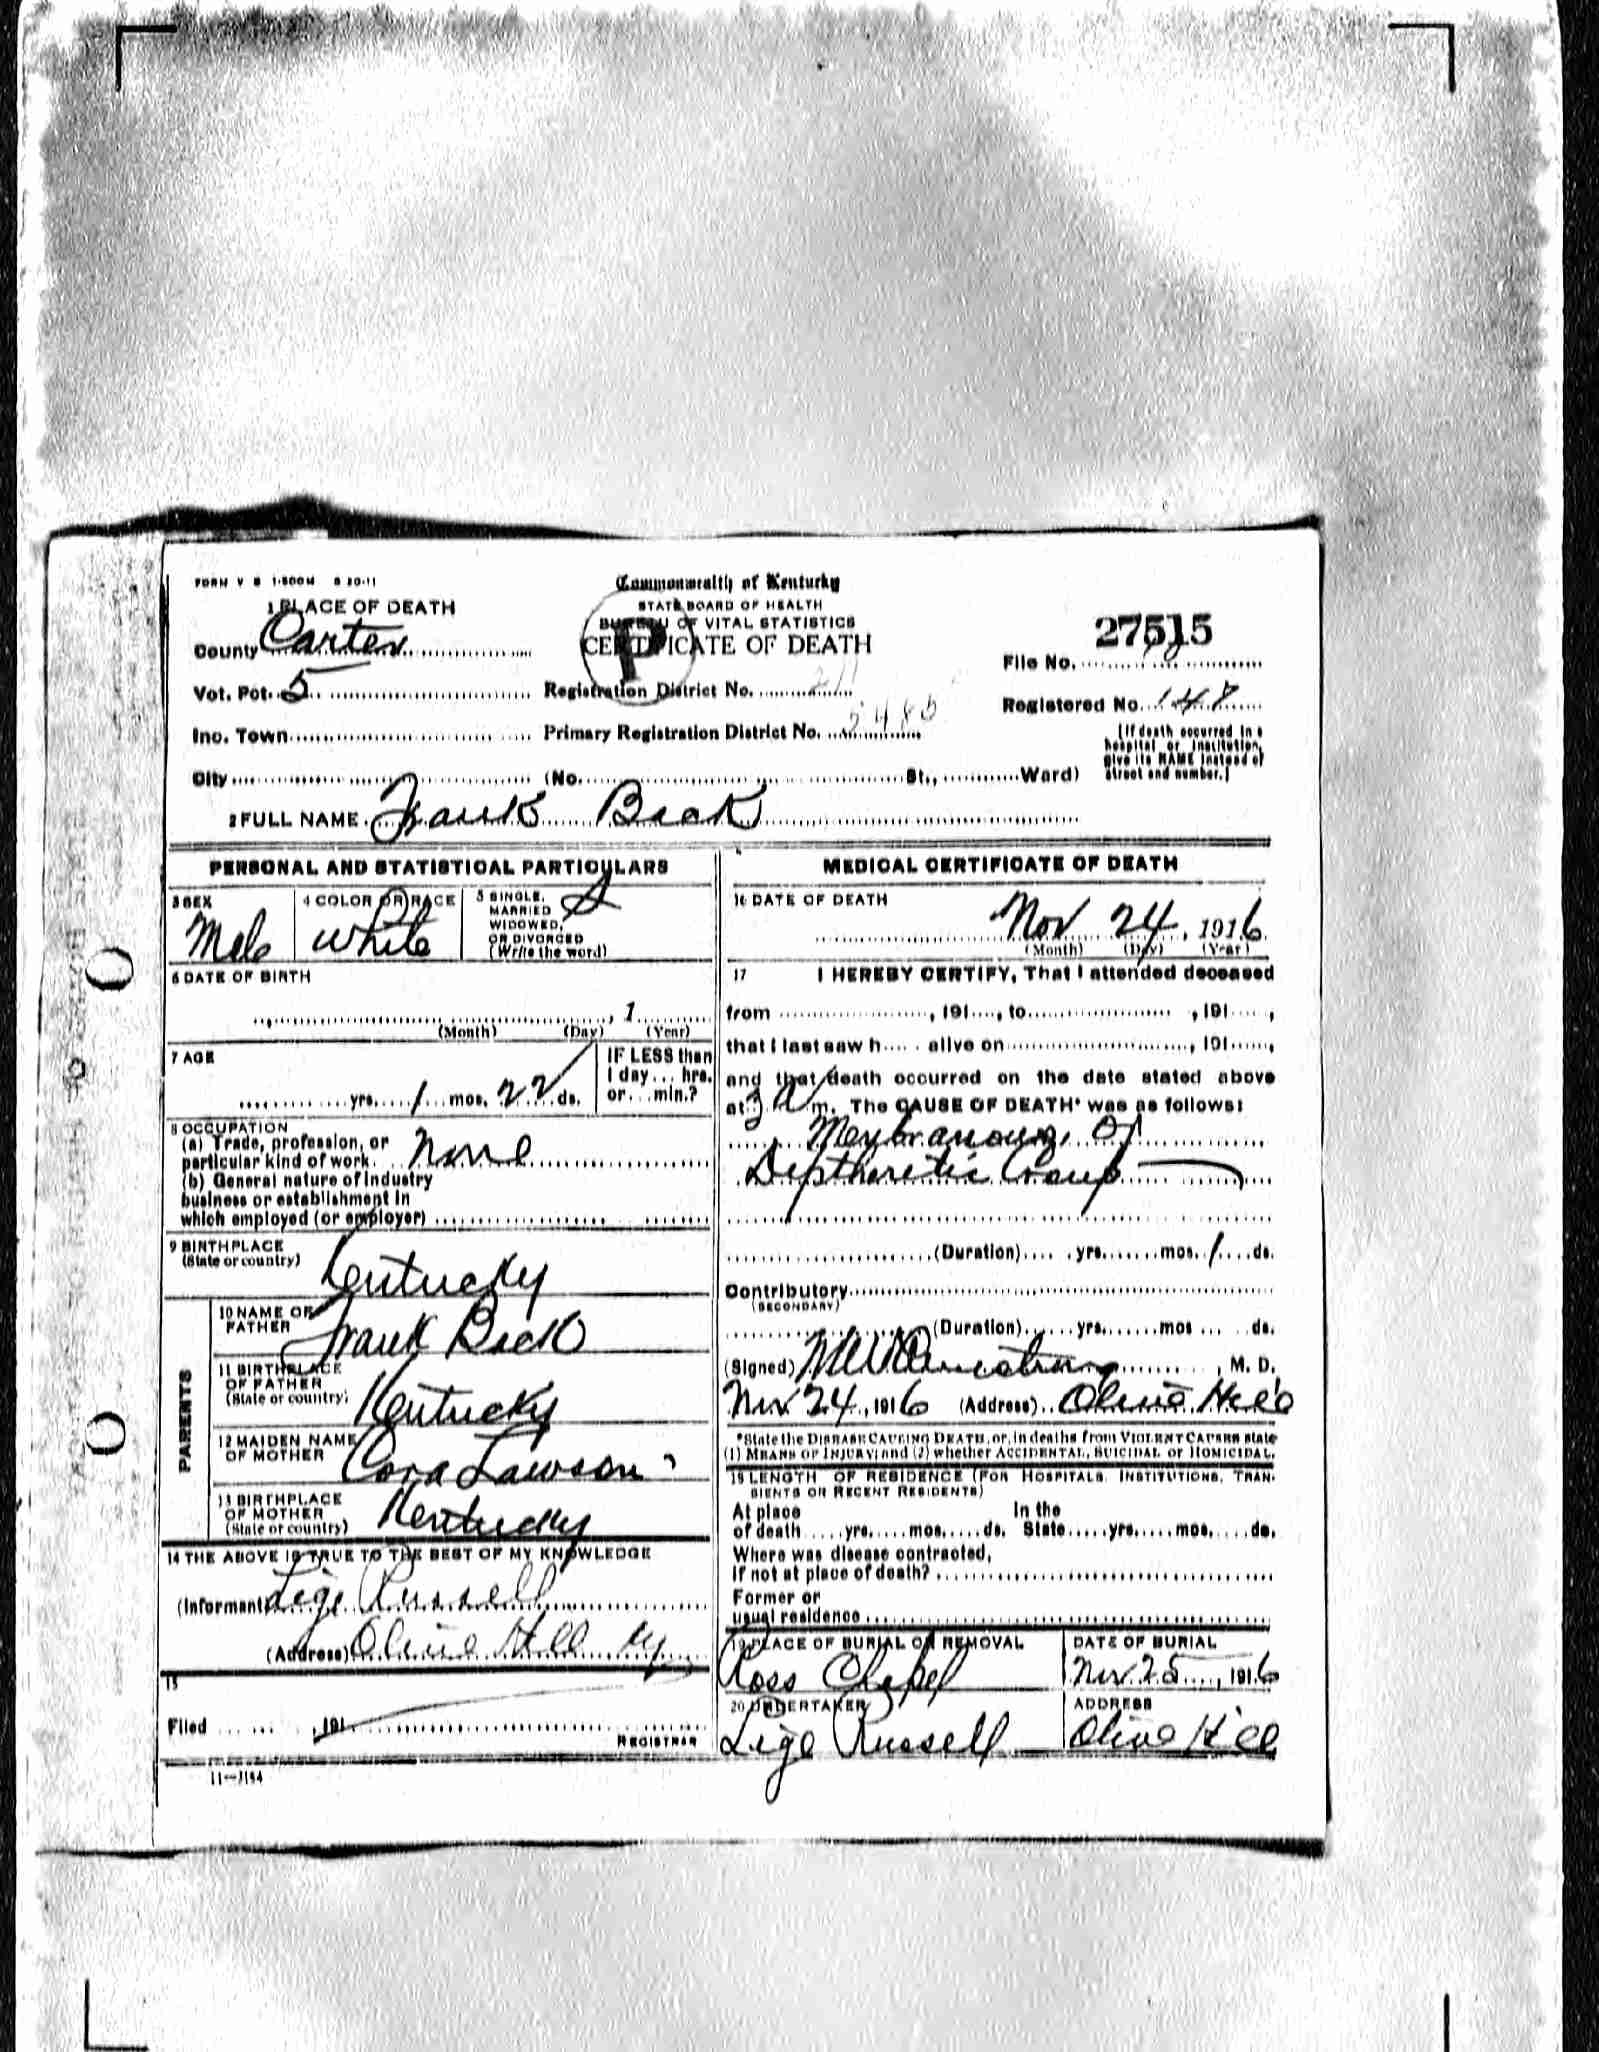 FORM V S 1-500M 8 20-11
Commonwealth of Kentucky
STATE BOARD OF HEALTH
BUREAU OF VITAL STATISTICS
CERTIFICATE OF DEATH
P
1 PLACE OF DEATH
County Carter
Vot. Pct. 5
Inc. Town
City (No. St., Ward)
Registration District No.
Primary Registration District No. 5480
27515
File No.
Registered No. 147
[If death occurred in a
hospital or institution,
give its NAME instead of
street and number.]
2 FULL NAME Frank Beck
PERSONAL AND STATISTICAL PARTICULARS
3 SEX
Male
4 COLOR OR RACE
White
5 SINGLE,
MARRIED
WIDOWED,
OR DIVORCED
(Write the word)
S
6 DATE OF BIRTH
, 1
(Month) (Day) (Year)
7 AGE
yrs. 1 mos. 22 ds.
IF LESS than
1 day... hrs.
or... min.?
8 OCCUPATION
(a) Trade, profession, or
particular kind of work None
(b) General nature of industry
business or establishment in
which employed (or employer)
9 BIRTHPLACE
(State or country) Kentucky
PARENTS
10 NAME OF
FATHER Frank Beck
11 BIRTHPLACE
OF FATHER
(State or country) Kentucky
12 MAIDEN NAME
OF MOTHER Cora Lawson
13 BIRTHPLACE
OF MOTHER
(State or country) Kentucky
14 THE ABOVE IS TRUE TO THE BEST OF MY KNOWLEDGE
(Informant) Lige Russell
(Address) Olive Hill Ky
15
Filed , 191
REGISTRAR
11-3184
MEDICAL CERTIFICATE OF DEATH
16 DATE OF DEATH
Nov 24, 1916
(Month) (Day) (Year)
17 I HEREBY CERTIFY, That I attended deceased
from , 191 , to , 191 ,
that I last saw h alive on , 191 ,
and that death occurred on the date stated above
at 3 A m. The CAUSE OF DEATH* was as follows:
Meybranous, Or
Diptheretic Croup
(Duration) yrs. mos. 1 ds.
Contributory
(SECONDARY)
(Duration) yrs. mos ds.
(Signed) Armstrong , M. D.
Nov 24, 1916 (Address) Olive Hill
*State the DISEASE CAUSING DEATH, or, in deaths from VIOLENT CAUSES state
(1) MEANS OF INJURY; and (2) whether ACCIDENTAL, SUICIDAL or HOMICIDAL.
18 LENGTH OF RESIDENCE (FOR HOSPITALS, INSTITUTIONS, TRAN-
SIENTS OR RECENT RESIDENTS)
At place In the
of death yrs. mos. ds. State yrs. mos. ds.
Where was disease contracted,
If not at place of death?
Former or
usual residence
19 PLACE OF BURIAL OR REMOVAL
Ross Chapel
DATE OF BURIAL
Nov. 25, 1916
20 UNDERTAKER
Lige Russell
ADDRESS
Olive Hill